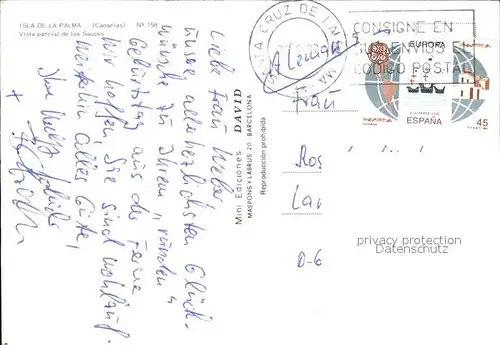 ISLA DE LA PALMA (Canarias) Nº 158
Vista parcial de los Sauces
Liebe Frau Weber,
unsere allerherzlichsten Glück-
wünsche zu Ihrem "runden"
Geburtstag aus der Ferne
Wir hoffen, Sie sind wohlauf.
Weiterhin alles Gute,
Ihre
+
Mini Ediciones DAVID
MASPONS Y LABRUS 20 BARCELONA
Reproducción prohibida
SANTA CRUZ DE LA PALMA
CONSIGNE EN
SUS ENVIOS EL
CODIGO POSTAL
EUROPA
ESPAÑA
45
Alemania
Frau
Ros
Lan
D-6
privacy protection
Datenschutz